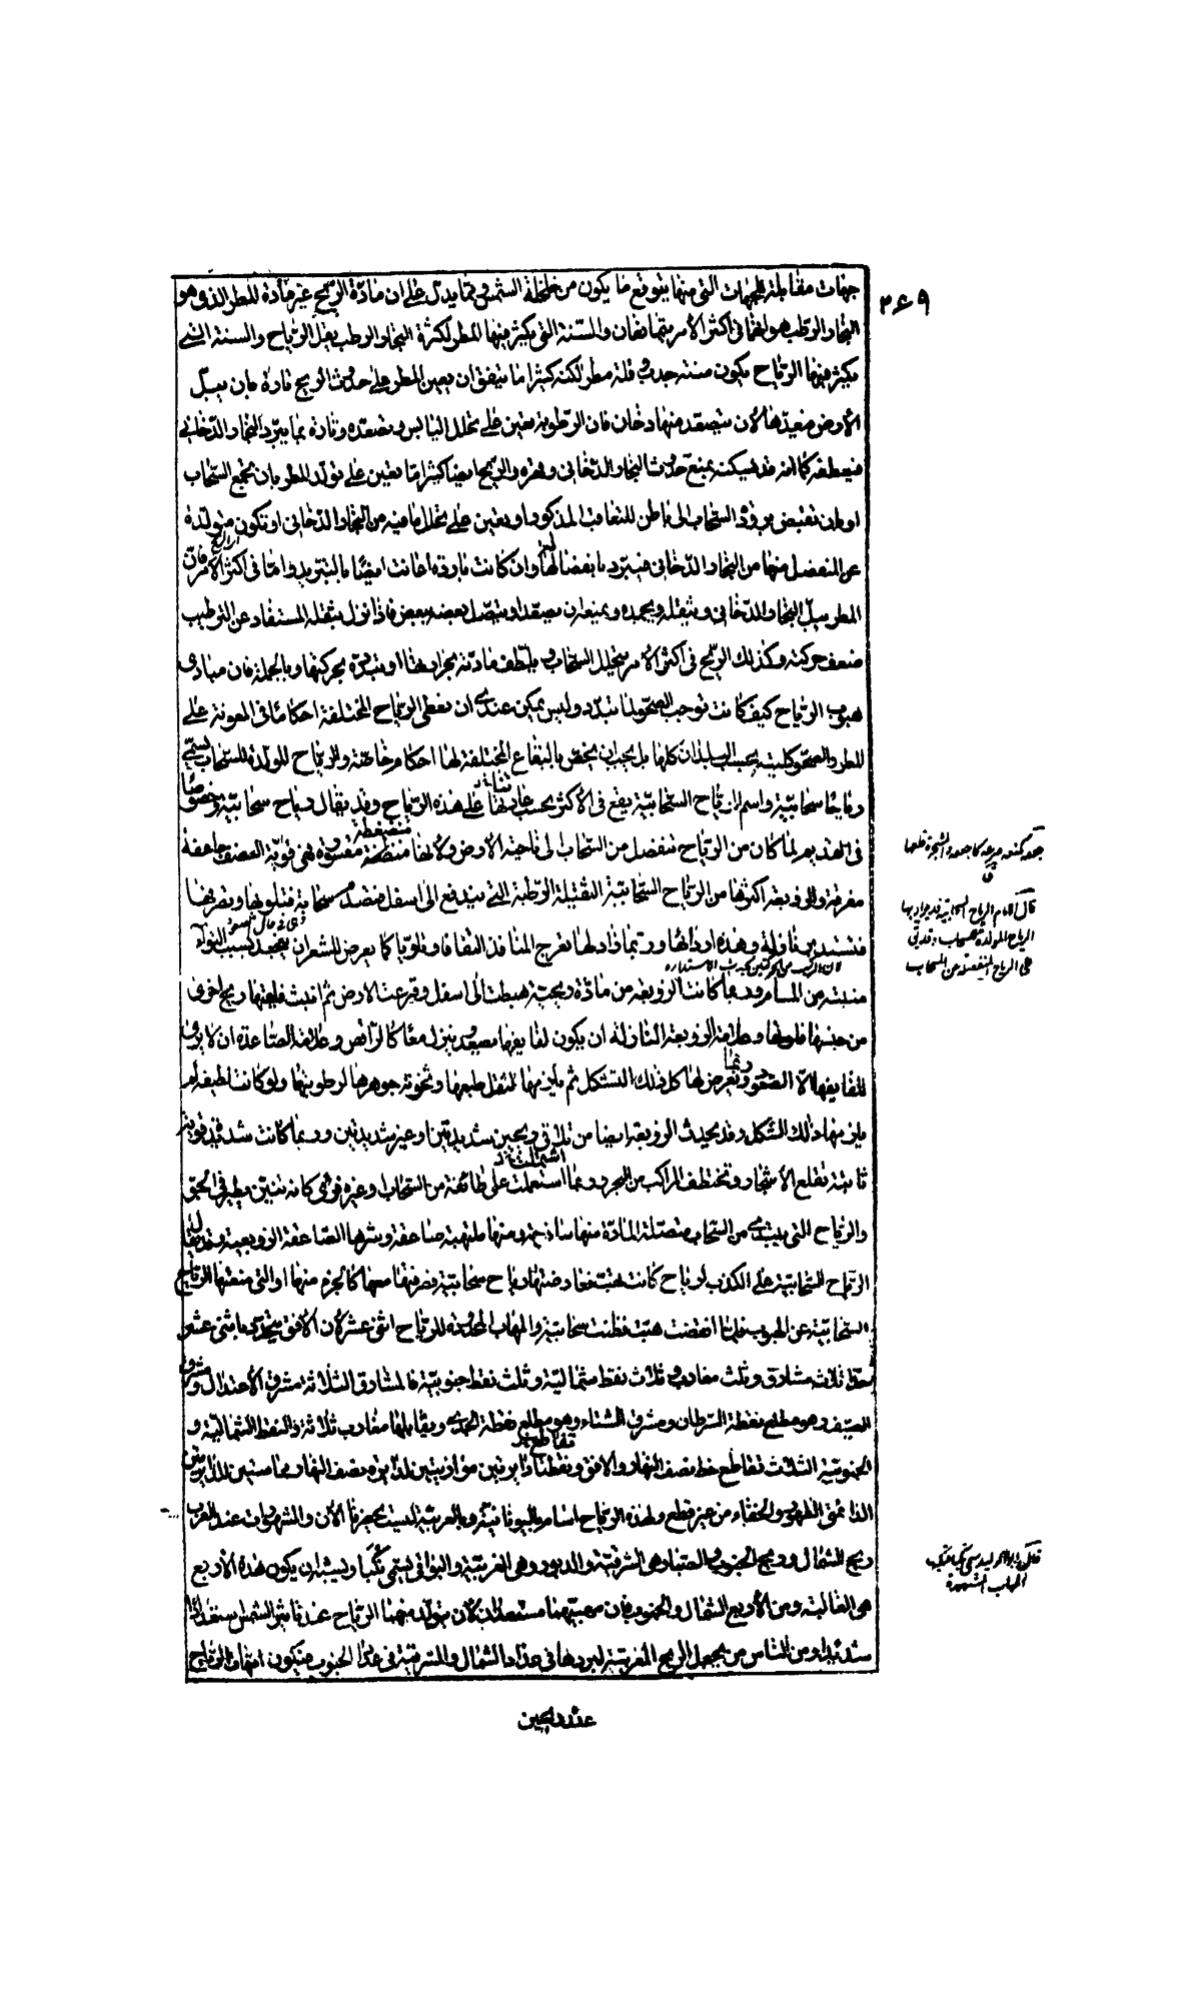 ٢٤٩
جهات مقابلة للجهات التي منها يتوقع ما يكون من خلخلة الشمس ومما يدل على ان مادة الريح غير مادة المطر الذي هو
البخار الرطب هو انهما في اكثر الامر يتمانعان والسنة التي يكثر فيها المطر لكثرة البخار الرطب يقل الرياح والسنة التي
يكثر فيها الرياح يكون سنة جدب وقلة مطر لكنه كثيرا ما يتفق ان يعين المطر على حدوث الريح تارة بان يبل
الارض فيعدها لان يتصعد منها دخان فان الرطوبة تعين على تحلل اليابس وتصعده وتارة بما يبرد البخار الدخاني
فيعطفه كما انه قد يسكنه بمنع حدوث البخار الدخاني وقهره والريح ايضا كثيرا ما تعين على تولد المطر بان يجمع السحاب
او بان تقبض برودة السحاب الى باطن للتعاقب المذكور او يعين على تحلل ما فيه من البخار الدخاني او تكون متولدة
عن المنفصل منها من البخار الدخاني فيتبرد بانفصالها وان كانت باردة اعانت ايضا بالتبريد واما في اكثر الامر فان
المطر يبل البخار الدخاني ويثقله ويجمده ويمنعه ان يصعد او يتصل بعضه ببعض فاذا نزل بثقله المستفاد عن الترطيب
ضعف حركته وكذلك الريح في اكثر الامر يحلل السحاب ويلطف مادته بحرارتها او يبدده بحركتها وبالجملة فان مبادي
هبوب الرياح كيف كانت توجب الصحو لما تبدد وليس يمكن عندي ان نعطي الرياح المختلفة احكاما في المعونة على
المطر والصحو كلية بحسب البلدان كلها بل يجب ان يخص بالبقاع المختلفة لها احكام خاصة والرياح المولدة للسحاب تسمى
رياحا سحابية واسم الرياح السحابية يقع في الاكثر بحسب عاداتنا على هذه الرياح وقد يقال رياح سحابية وخصوصا
في القديم لما كان من الرياح تنفصل من السحاب الى ناحية الارض ولانها منضغطة مقسورة فهي قوية العصف جاحفة
مغرقة والزوبعة اكثرها من الرياح السحابية الثقيلة الرطبة التي يندفع الى اسفل فتصدم سحابة فتلويها وتصرفها
فتستدير نازلة وهذه اردائها وربما زادها تعرج المنافذ التفافا وتلويا كما يعرض للشعر ان يتجعد بسبب التواء
منبته من المسام وربما كانت الزوبعة من مادة ريحية هبطت الى اسفل وقرعت الارض ثم انبثت فلقيتها ريح اخرى
من جنسها فلوتها وعلامة الزوبعة النازلة ان يكون لفائفها تصعد وينزل معا كالراقص وعلامة الصاعدة ان لا يرى
للفائفها الا الصعود وربما يعرض لها كل ذلك التشكل ثم يلزمها لثقل طبعها وثخونة جوهرها لرطوبتها ولو كانت لطيفة لم
يلزمها ذلك الشكل وقد يحدث الزوبعة ايضا من تلاقي ريحين شديدتين او غير شديدتين وربما كانت شديدة قوية
ثابتة تقلع الاشجار وتختطف المراكب من البحر وربما اشتملت على طائفة من السحاب او غيره فترى كانه تنين يطير في الجو
والرياح التي يبتدي من السحاب متصلة المادة منها ساذجة ومنها ملتهبة صاعقة وشرها الصاعقة الزوبعية وقد يقال
الرياح السحابية على الكذب لرياح كانت هبت فعارضتها رياح سحابية فصرفتها معها كالجزء منها او التي منعتها الرياح
السحابية عن الهبوب فلما انقضت هبت فظنت سحابية والمهاب المحدودة للرياح اثنى عشر لان الافق يتحدد باثنى عشر
حدا ثلاث مشارق وثلث مغارب وثلاث نقط شمالية وثلث نقط جنوبية فالمشارق الثلاثة مشرق الاعتدال ومشرق
الصيف وهو مطلع نقطة السرطان ومشرق الشتاء وهو مطلع نقطة الجدي ويقابلها مغارب ثلاثة والنقط الشمالية و
الجنوبية الثلث تقاطع خط نصف النهار والافق ونقطتا تقاطع دايرتين موازيتين لدايرة نصف النهار مماستين للدايرتين
الدائمتي الظهور والخفاء من غير قطع ولهذه الرياح اسام باليونانية وبالعربية ليست تحضرنا الان والمشهورات عند العرب
ريح الشمال وريح الجنوب والصبا وهي الشرقية والدبور وهي الغربية والبواقي تسمى نكبا ويشبه ان يكون هذه الاربع
هي الغالبة ومن الاربع الشمال والجنوب فان مهبيهما مستعدان لان يتولد فيهما الرياح عند تاثير الشمس استعدادا
شديدا ومن الناس من يجعل الريح المغربية لبردها في عداد الشمال والشرقية في عداد الجنوب فيكون امهات الرياح
عنده ريحين
قال الامام الرياح السحابية قد يراد بها
الرياح المولدة للسحاب وقد يقال
على الرياح المنفصلة من السحاب
المهاب المشهورة